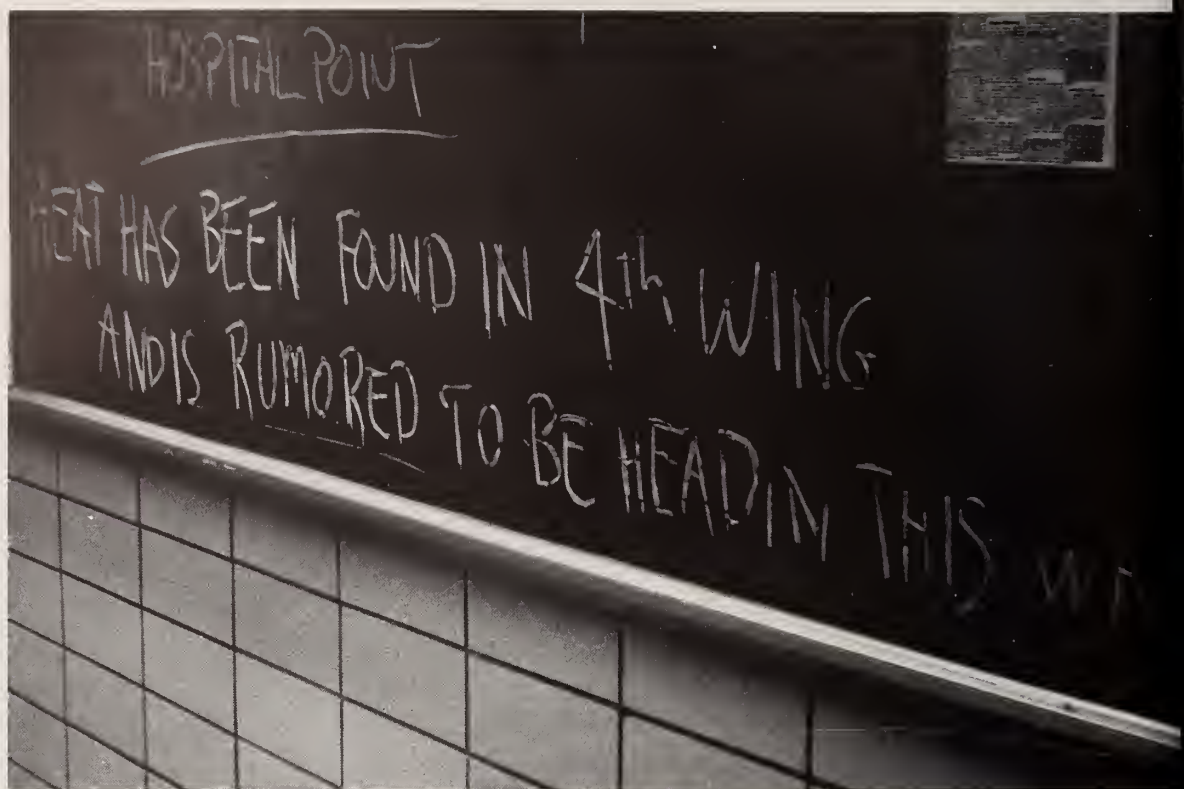 HOSPITAL POINT
HEAT HAS BEEN FOUND IN 4th WING
AND IS RUMORED TO BE HEADIN THIS WA